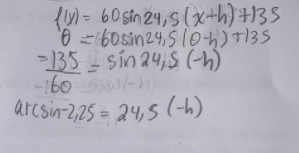 f(x) = 60sin24,5(x+h)+135
0 = 60sin24,5(0-h)+135
-135/60 = sin24,5(-h)
arcsin-2,25 = 24,5(-h)